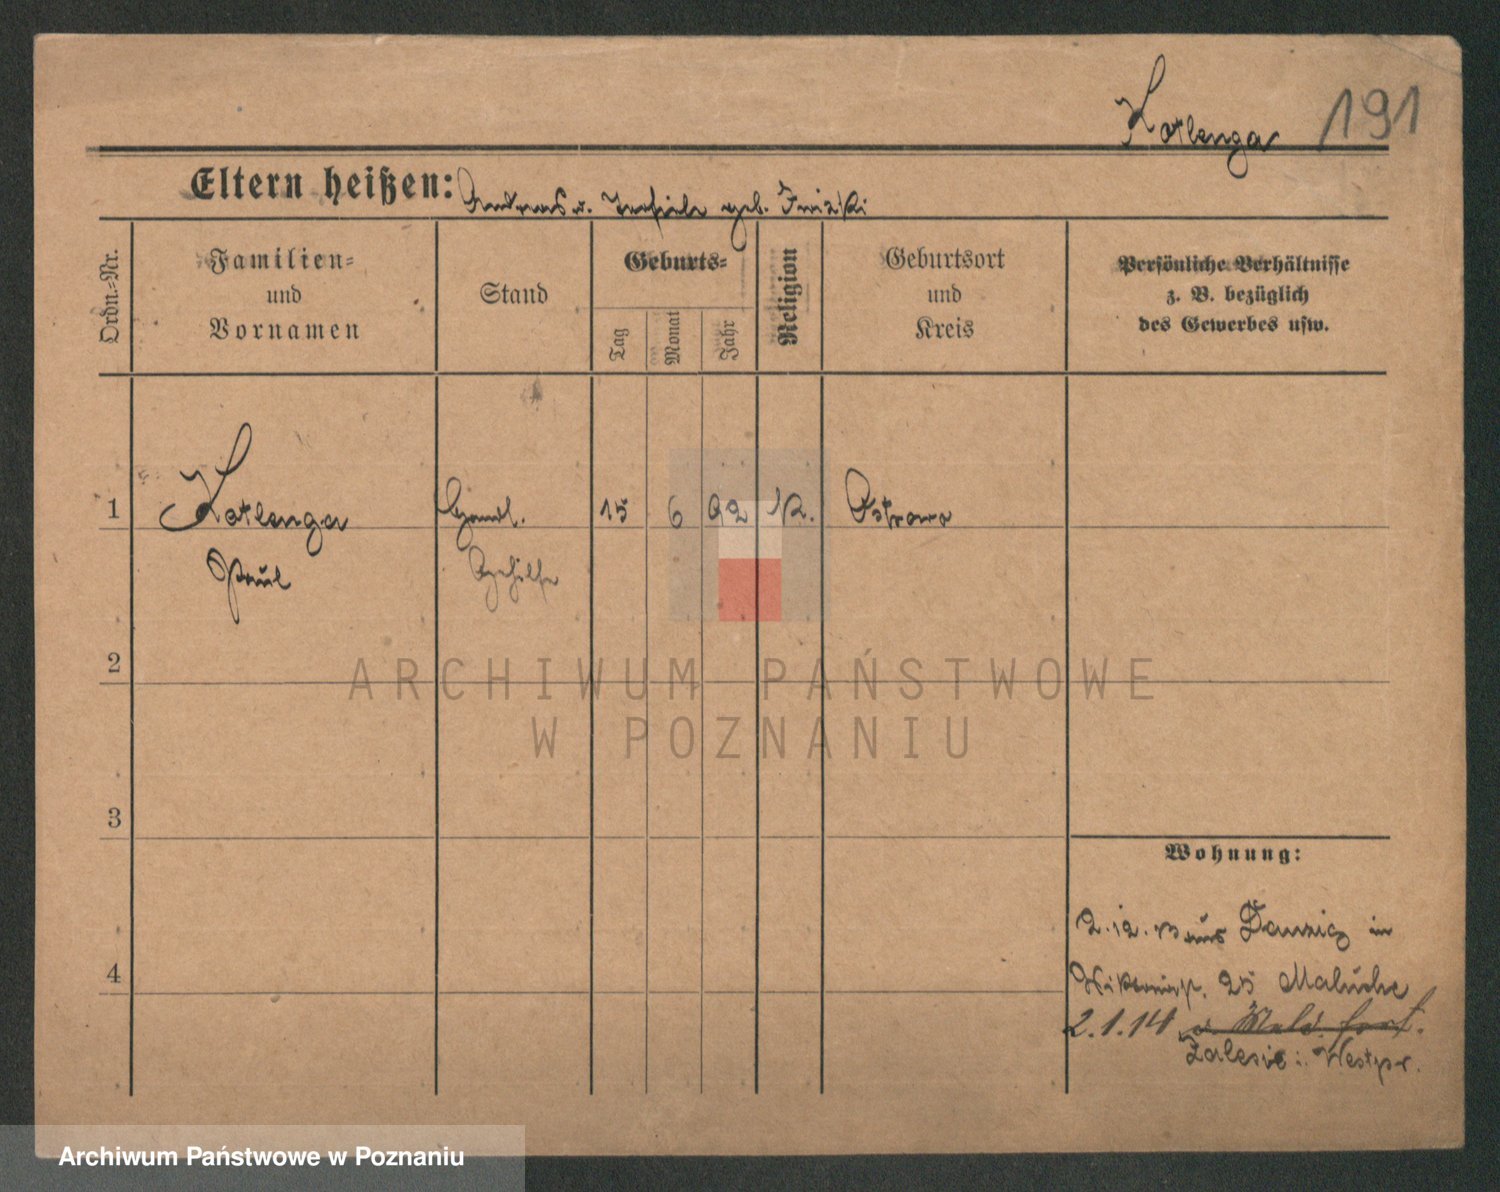 Kotlenga 191
Eltern heißen: Andreas u. geb.
Ordn.-Nr.
Familien-
und
Vornamen
Stand
Geburts-
Tag
Monat
Jahr
Religion
Geburtsort
und
Kreis
Persönliche Verhältnisse
z. B. bezüglich
des Gewerbes usw.
1 Kotlenga Handl. 15 6 92 K. Ostrowo
Paul Gehilfe
2
ARCHIWUM PAŃSTWOWE
W POZNANIU
3
Wohnung:
2.12.13 aus Danzig in
25 Maluche
4
2.1.14 fort.
Zalesie i. Westpr.
Archiwum Państwowe w Poznaniu